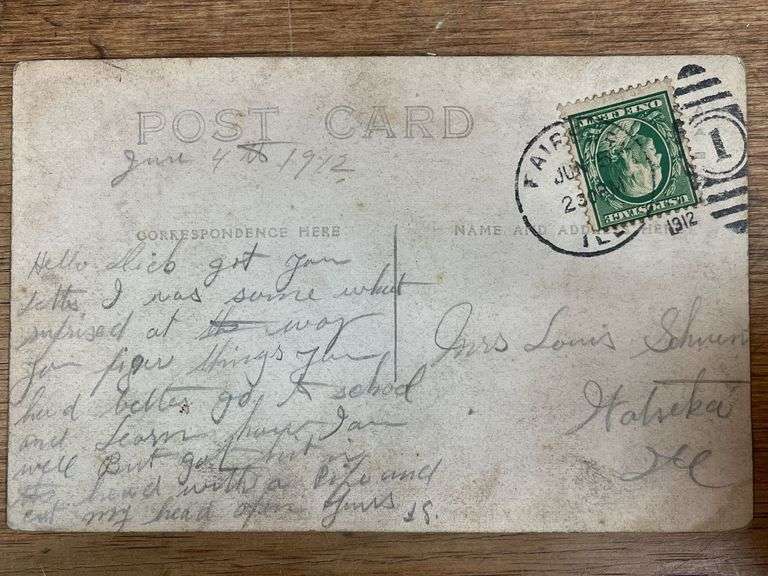 POST CARD
June 4th 1912
CORRESPONDENCE HERE
NAME AND ADDRESS HERE
FAIR
JUN
1912
ILL
1
U.S. POSTAGE
ONE CENT
Hello got your
letter I was some what
surprised at the way
you figer things you
had better go to school
and Learn how I am
well But got hit in
the head with a and
cut my head open Yours
Mrs Louis
Watseka
Ill